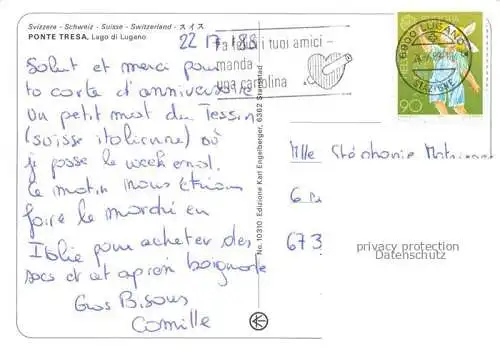 Svizzera - Schweiz - Suisse - Switzerland - スイス
PONTE TRESA, Lago di Lugano
22 17 '89
Salut et merci pour
ta carte d'anniversaire
Un petit mot du Tessin
(suisse italienne) où
je passe le week end.
Ce matin nous étions
faire le marché en
Italie pour acheter des
sacs et cet après baignade
Gros Bisous
Camille
No. 10310 Edizione Karl Engelberger, 6362 Stansstad
i tuoi amici -
manda
una cartolina
6900 LUGANO
STAZIONE
90
Mlle Stéphanie
6
673
privacy protection
Datenschutz